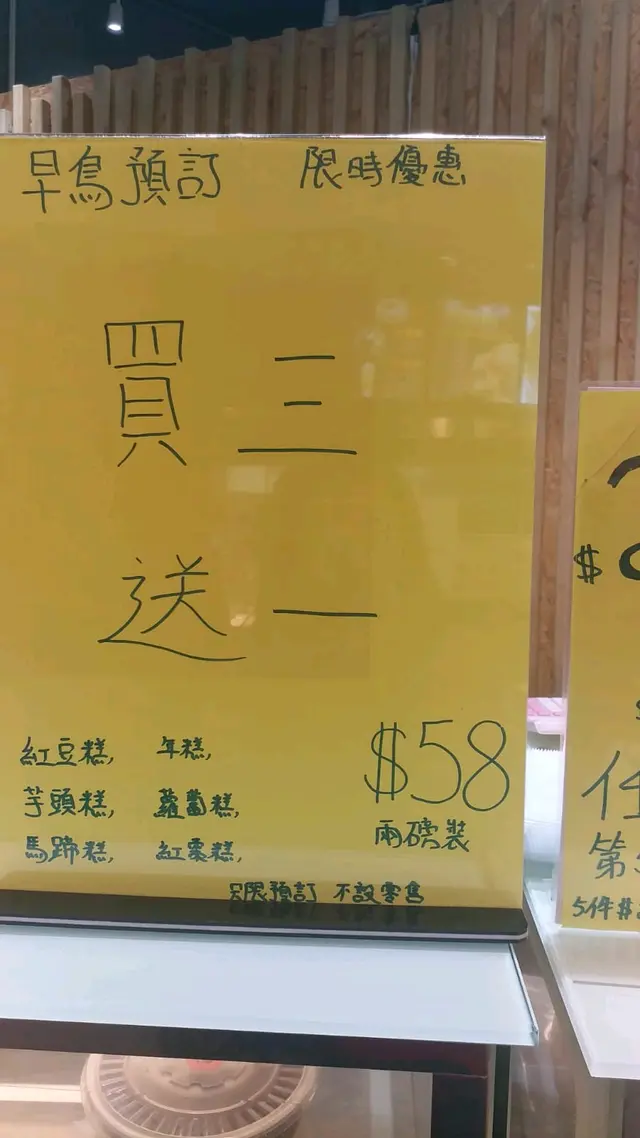 早鳥預訂 限時優惠
買三
送一
紅豆糕, 年糕,
芋頭糕, 蘿蔔糕,
馬蹄糕, 紅棗糕,
$58
兩磅裝
只限預訂 不設零售
$
任
第
5件$